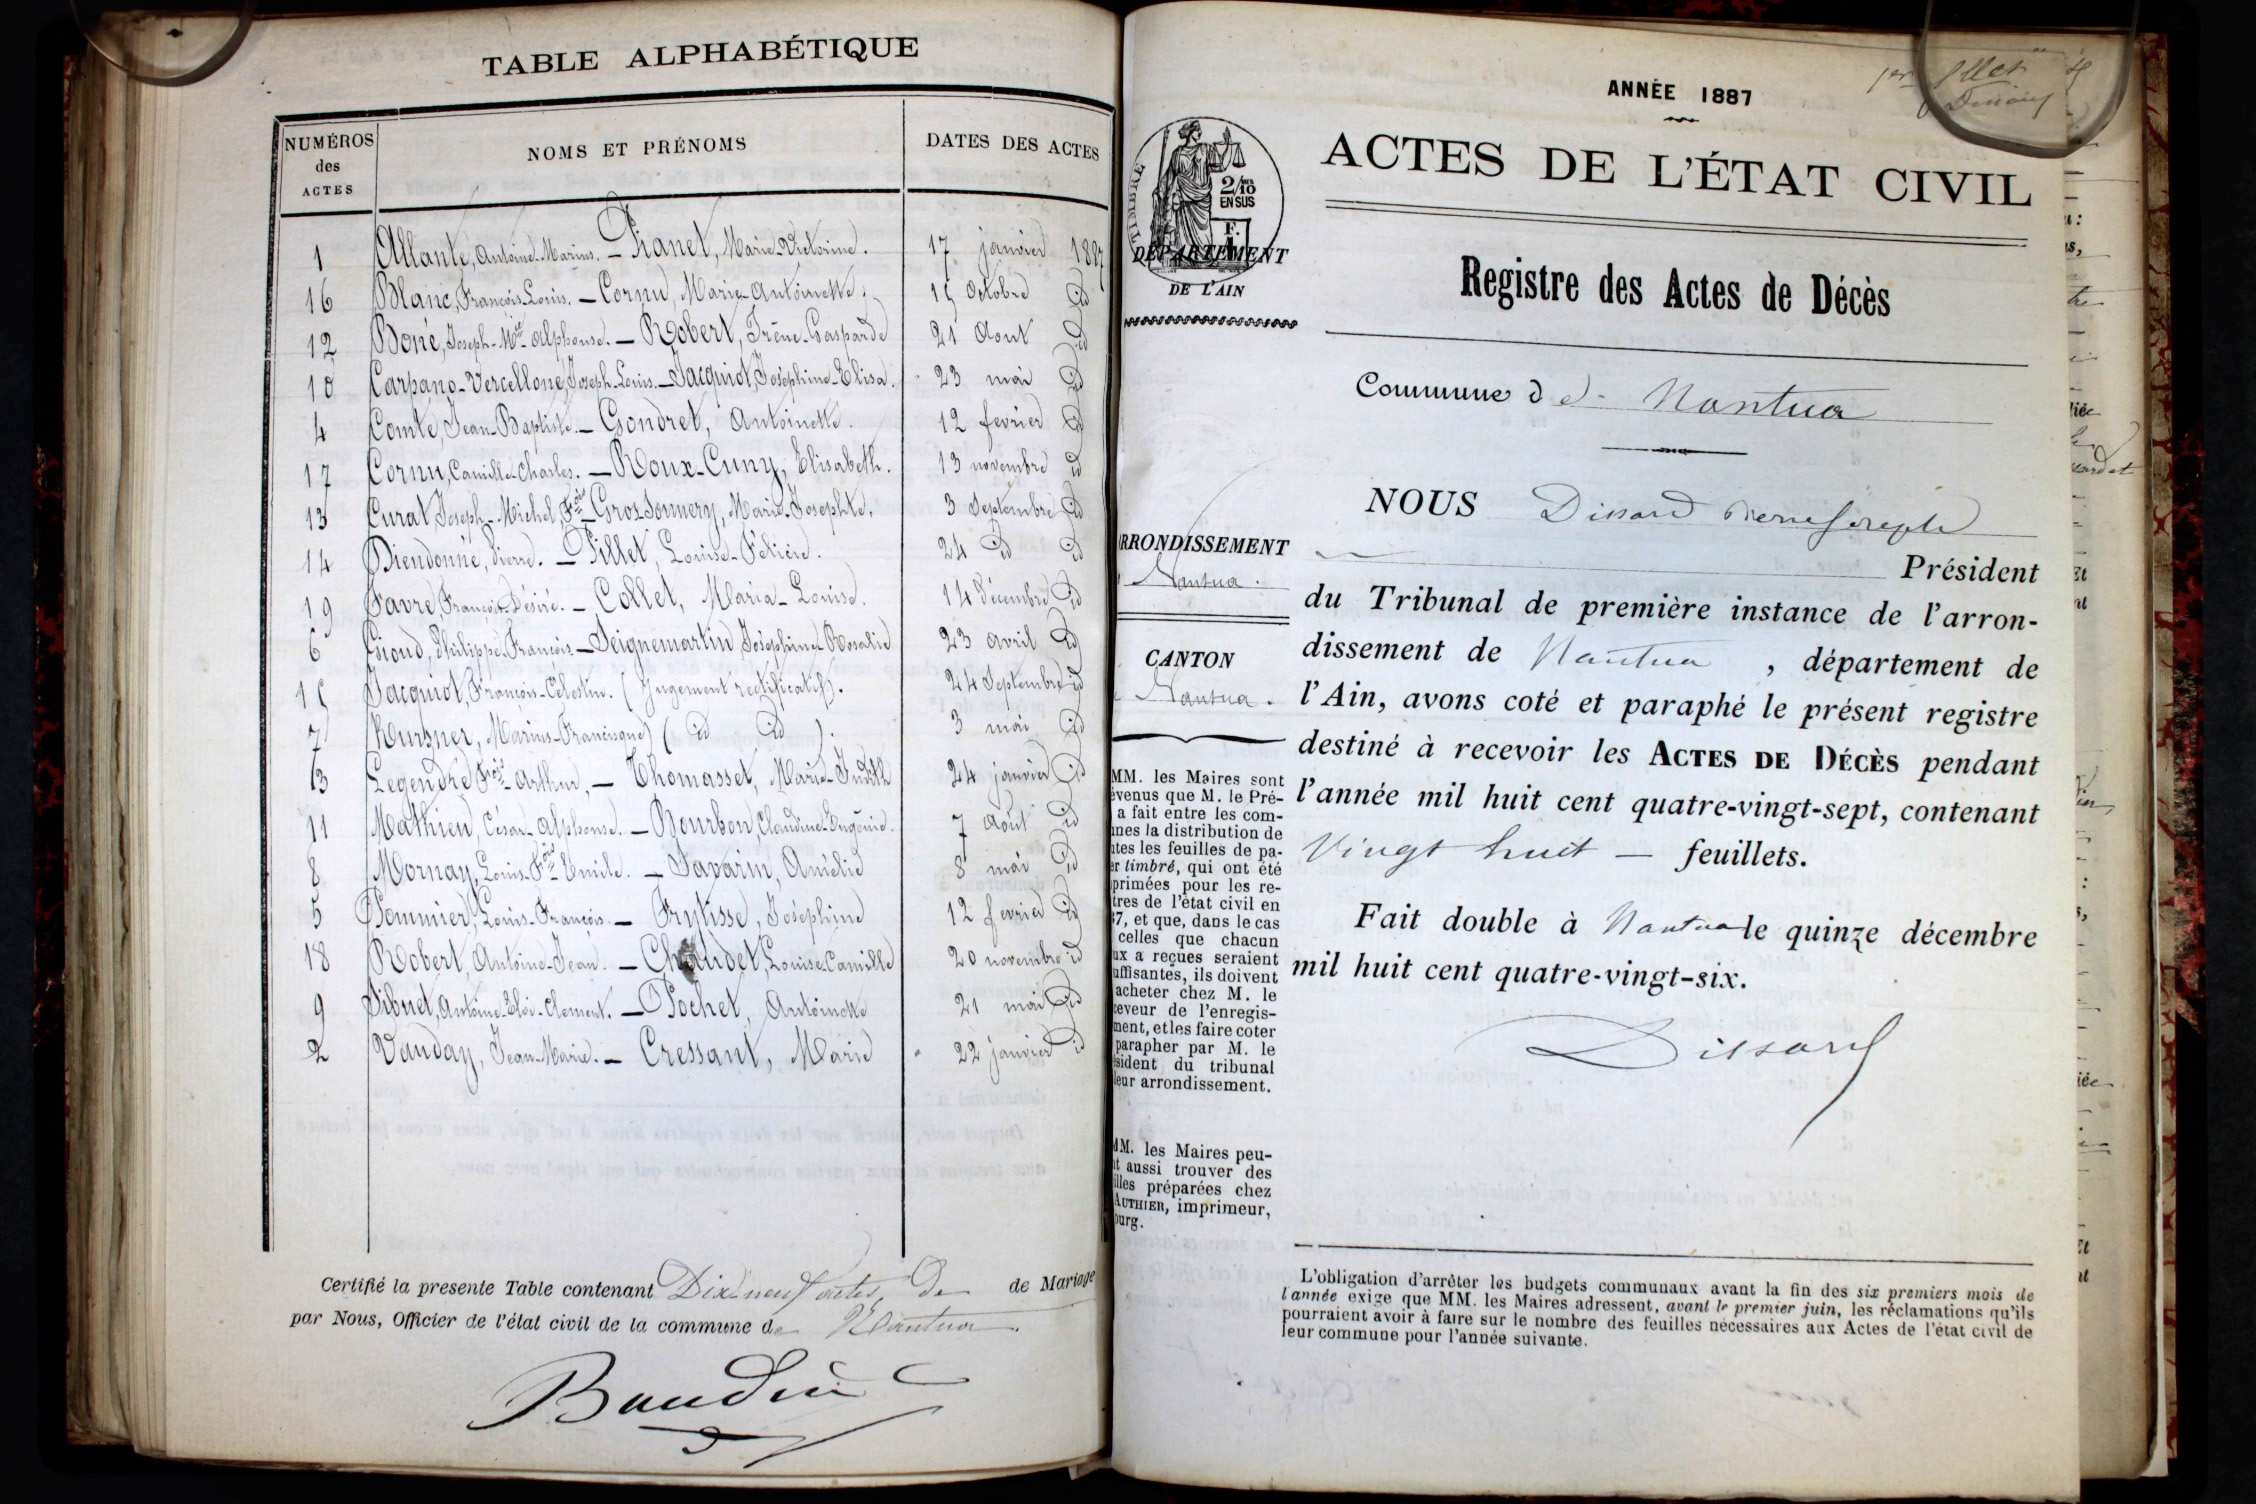 TABLE ALPHABÉTIQUE
NUMÉROS des ACTES
NOMS ET PRÉNOMS
DATES DES ACTES
1 Allante, Antoine-Marius. — Pianet, Marie-Victorine. 17 janvier 1887
16 Blanc, François-Louis. — Cornu, Marie-Antoinette. 15 Octobre id
12 Boné, Joseph-Mie Alphonse. — Robert, Irène-Gasparde 21 Aout id
10 Carpano-Vercellone, Joseph-Louis. — Jacquiot, Joséphine-Elisa. 23 mai id
4 Comte, Jean-Baptiste. — Gondret, Antoinette. 12 fevrier id
17 Cornu, Camille-Charles. — Roux-Cuny, Elisabeth. 13 novembre id
13 Curat, Joseph-Michel, Fois — Gros Jonnery, Marie-Josephte. 3 Septembre id
14 Dieudonné, Pierre. — Pillet, Louise-Félicie. 24 id id
19 Favre, François-Désiré. — Collet, Maria-Louise. 14 Décembre id
6 Girond, Philippe-François — Seignemartin Joséphine-Rosalie 23 avril id
15 Jacquiot, François-Célestin. (Jugement rectificatif). 24 Septembre id
7 Kursner, Marius-Francisque (id id). 3 mai id
3 Legendre Fois-Arthur, — Thomasset, Marie-Judith 24 janvier id
11 Mathieu, César-Alphonse. — Bourbon, Claudine-Eugénie. 7 Août id
8 Mornay, Louis-Fois-Emile. — Savarin, Amélie 8 mai id
5 Pommier, Louis-François. — Frytisse, Joséphine 12 fevrier id
18 Robert, Antoine-Jean. — Chaudet, Louise-Camille 20 novembre id
9 Sibuet, Antoine-Eloi-Clement. — Pochet, Antoinette 21 mai id
2 Vanday, Jean-Marie. — Cressant, Marie 22 janvier id
Certifié la presente Table contenant Dix-neuf actes De de Mariage
par Nous, Officier de l'état civil de la commune de Nantua.
Baudin
1er
ANNÉE 1887
TIMBRE
2/10 EN SUS
F. 1
DÉPARTEMENT
DE L'AIN
ACTES DE L'ÉTAT CIVIL
Registre des Actes de Décès
Commune de Nantua
NOUS Dissard Pierre Joseph
Président
du Tribunal de première instance de l'arron-
dissement de Nantua, département de
l'Ain, avons coté et paraphé le présent registre
destiné à recevoir les ACTES DE DÉCÈS pendant
l'année mil huit cent quatre-vingt-sept, contenant
Vingt huit — feuillets.
Fait double à Nantua le quinze décembre
mil huit cent quatre-vingt-six.
Dissard
RRONDISSEMENT
Nantua.
CANTON
Nantua.
MM. les Maires sont
évenus que M. le Pré-
a fait entre les com-
nes la distribution de
tes les feuilles de pa-
er timbré, qui ont été
primées pour les re-
tres de l'état civil en
87, et que, dans le cas
celles que chacun
ux a reçues seraient
uffisantes, ils doivent
acheter chez M. le
ceveur de l'enregis-
ment, et les faire coter
parapher par M. le
ésident du tribunal
leur arrondissement.
MM. les Maires peu-
nt aussi trouver des
illes préparées chez
AUTHIER, imprimeur,
ourg.
L'obligation d'arrêter les budgets communaux avant la fin des six premiers mois de
l'année exige que MM. les Maires adressent, avant le premier juin, les réclamations qu'ils
pourraient avoir à faire sur le nombre des feuilles nécessaires aux Actes de l'état civil de
leur commune pour l'année suivante.